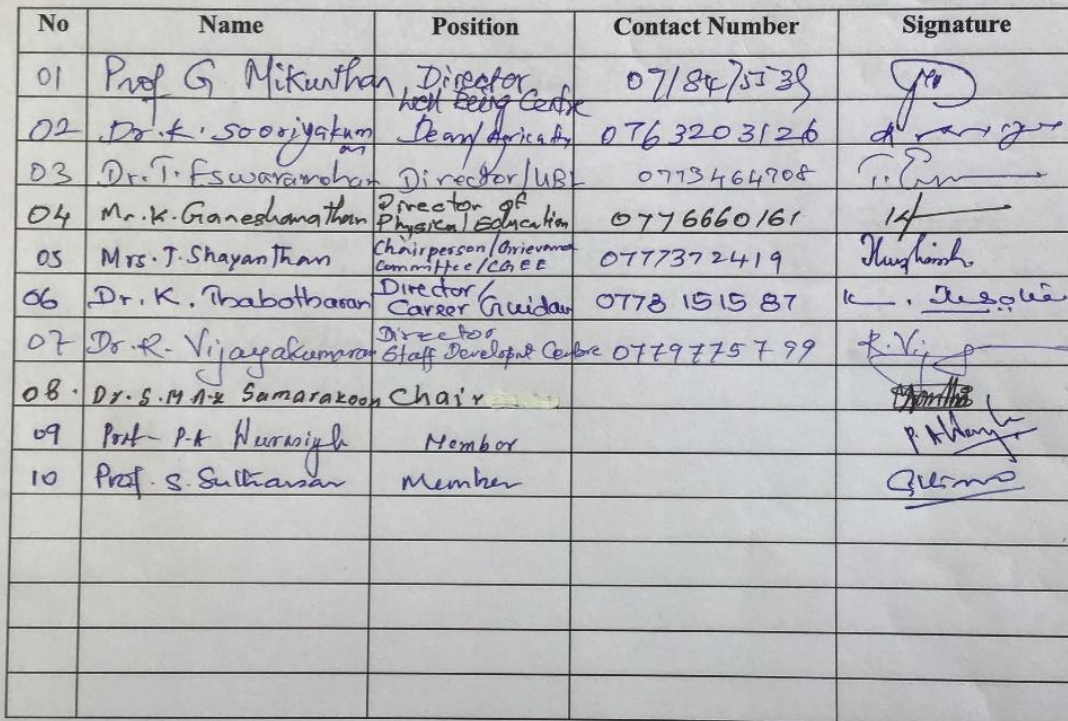 No Name Position Contact Number Signature
01 Prof G Mikunthan Director Well Being Centre 0718475539
02 Dr. K. Sooriyakumar Dean/Agriculture 0763203126
03 Dr. T. Eswaramohan Director/UBL 0773464708
04 Mr. K. Ganeshanathan Director of Physical Education 0776660161
05 Mrs. J. Shayanthan Chairperson/Grievance Committee/CGEE 0777372419
06 Dr. K. Thabotharan Director/ Career Guidan 0773 1515 87
07 Dr. R. Vijayakumaran Director Staff Developt Centre 0779775799
08. Dr. S.M.A.K Samarakoon Chair
09 Prof P.A Member
10 Prof. S. Sutharsan Member